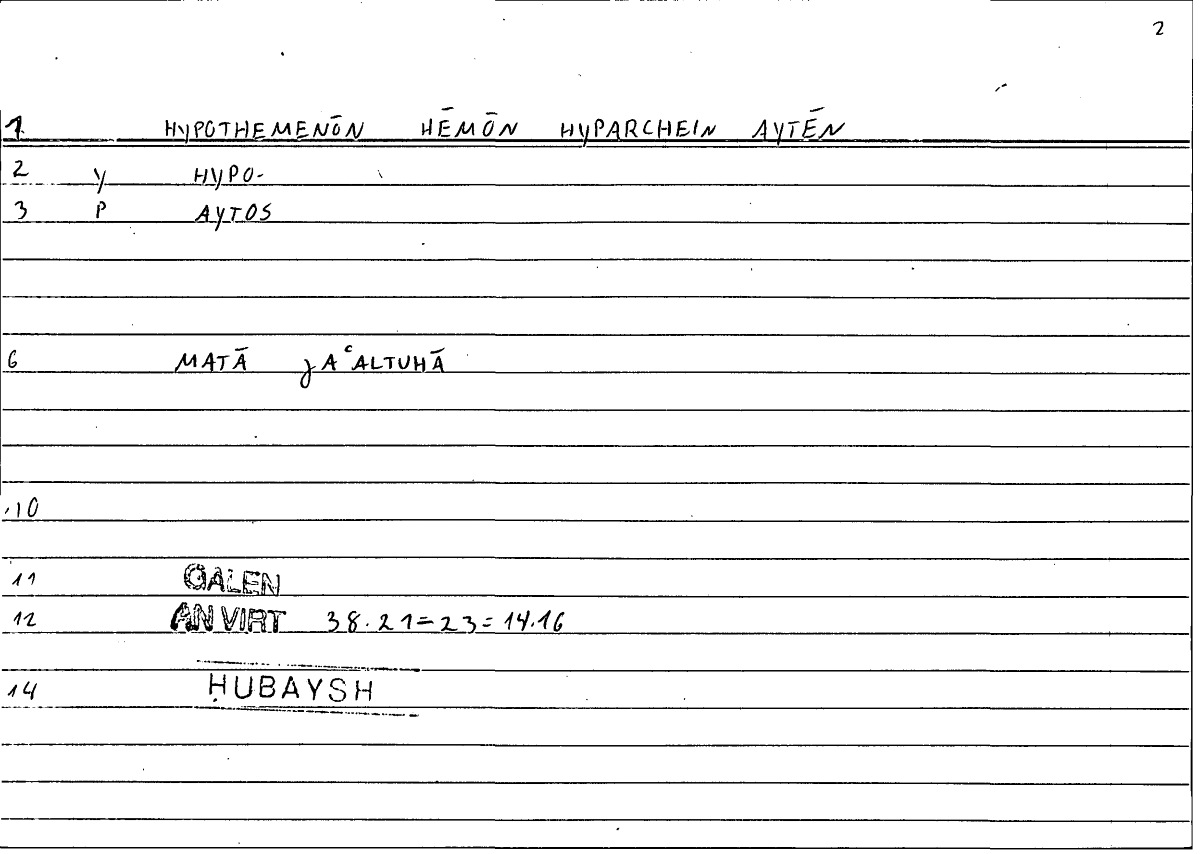 2
1 HYPOTHEMENŌN HĒMŌN HYPARCHEIN AYTĒN
2 y HYPO-
3 P AYTOS
6 MATĀ jAʿALTUHĀ
10
11 GALEN
12 AN VIRT 38.21=23=14.16
14 ḤUBAYSH